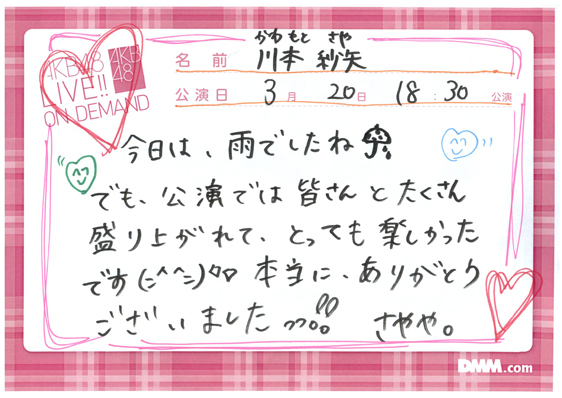 AKB48
LIVE!!
ON DEMAND
AKB
48
かわもと さや
名前 川本 紗矢
公演日 3月 20日 18:30 公演
今日は、雨でしたね
でも、公演では皆さんとたくさん
盛り上がれて、とっても楽しかった
です(ﾆ^^ﾆ) 本当に、ありがとう
ございました!! さやや。
DMM.com